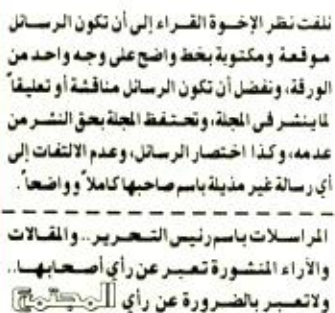 نلفت نظر الإخوة القراء إلى أن تكون الرسائل
موقعة ومكتوبة بخط واضح على وجه واحد من
الورقة، ونفضل أن تكون الرسائل مناقشة أو تعليقاً
لما ينشر في المجلة، وتحتفظ المجلة بحق النشر من
عدمه، وكذا اختصار الرسائل، وعدم الالتفات إلى
أي رسالة غير مذيلة باسم صاحبها كاملاً وواضحاً.
المراسلات باسم رئيس التحرير.. والمقالات
والآراء المنشورة تعبر عن رأي أصحابها..
ولاتعبر بالضرورة عن رأي المجتمع